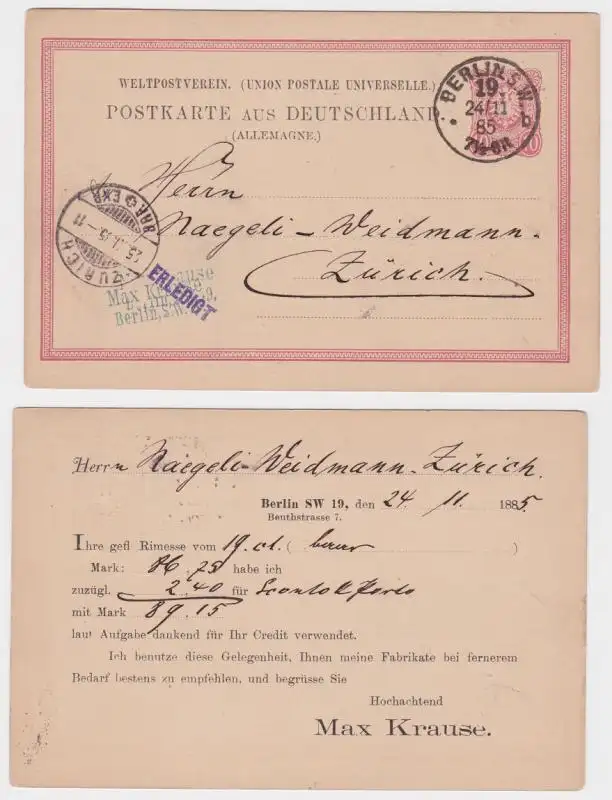 WELTPOSTVEREIN. (UNION POSTALE UNIVERSELLE.)
POSTKARTE AUS DEUTSCHLAND
(ALLEMAGNE.)
BERLIN S.W.
19.
24/11
85
b
Herrn
Naegeli-Weidmann.
Zürich.
ZÜRICH
BRF EXP
ERLEDIGT
Max Krause
Berlin, S.W.
Herrn Naegeli-Weidmann. Zürich.
Berlin SW 19, den 24. 11. 1885.
Beuthstrasse 7.
Ihre gefl Rimesse vom 19. ct. ( )
Mark: 86.75 habe ich
zuzügl. 2.40 für Sconto & Porto
mit Mark 89.15
laut Aufgabe dankend für Ihr Credit verwendet.
Ich benutze diese Gelegenheit, Ihnen meine Fabrikate bei fernerem
Bedarf bestens zu empfehlen, und begrüsse Sie
Hochachtend
Max Krause.